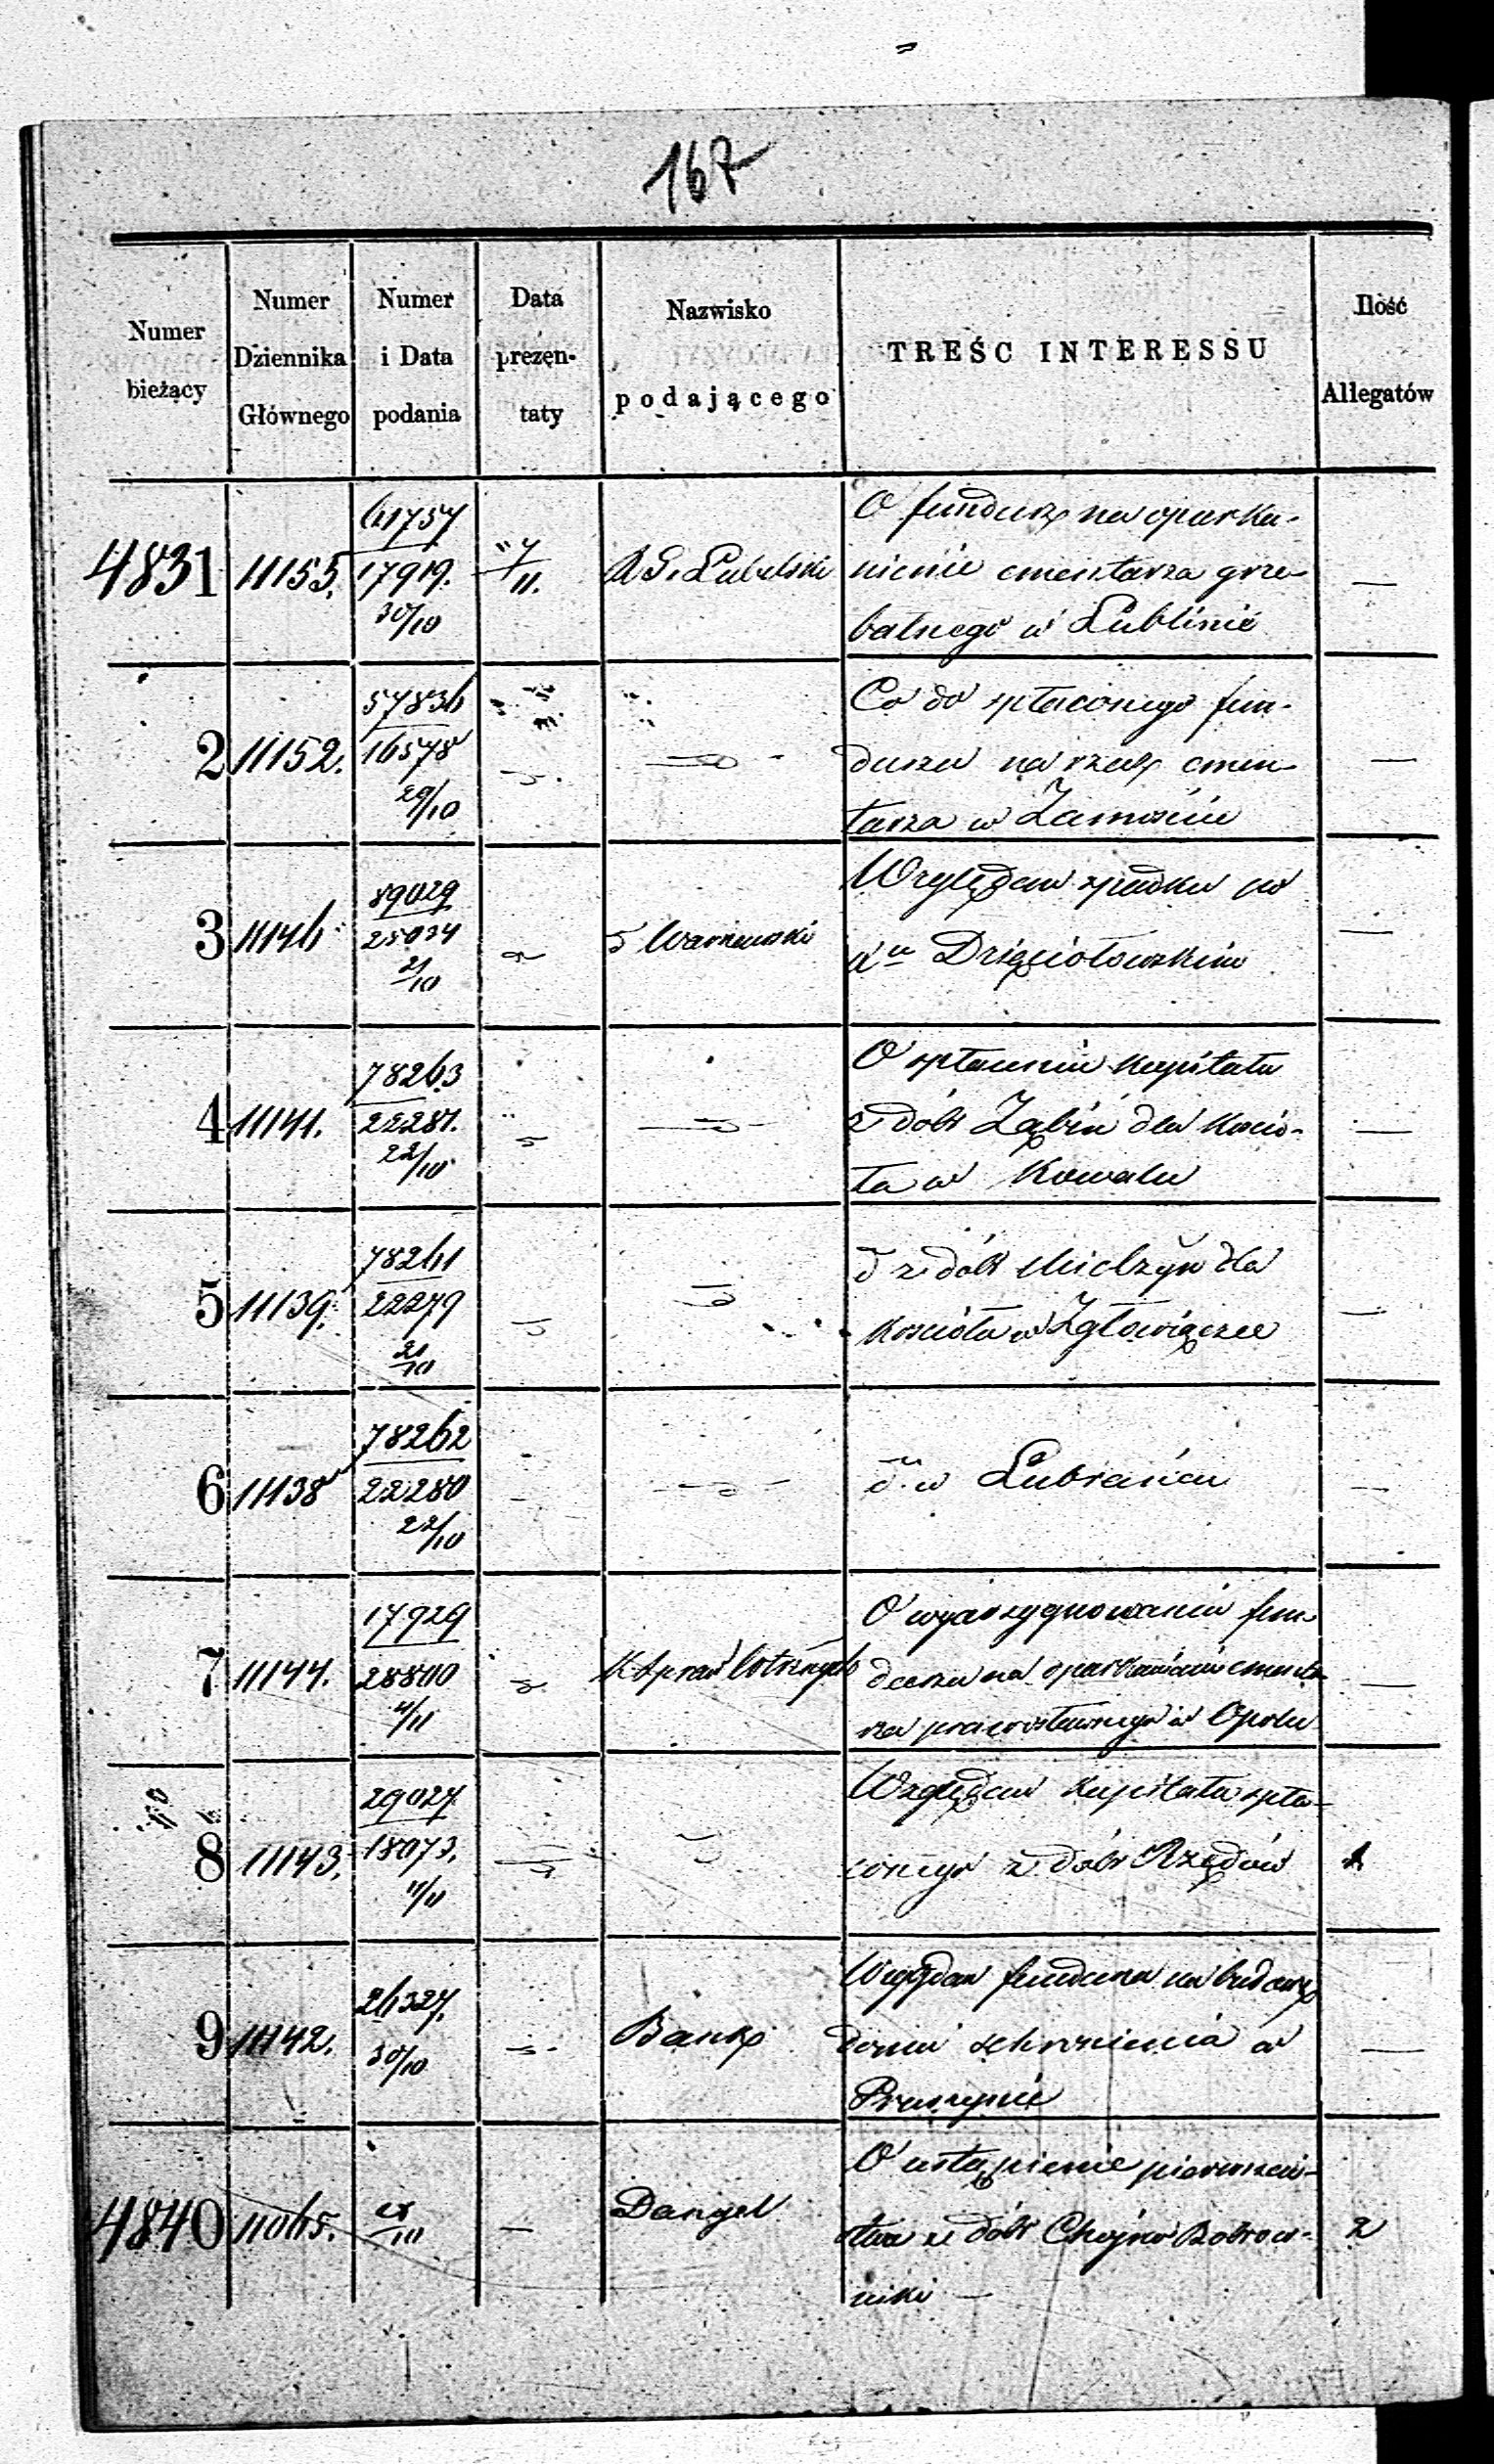 167
Numer bieżący
Numer Dziennika Głównego
Numer i Data podania
Data prezen-taty
Nazwisko podającego
TREŚĆ INTERESSU
Ilość Allegatów
4831 11155. 61757 17919. 30/10 4/11. R. G. Lubelski
O fundusz na oparka-
nienie cmentarza grze-
balnego w Lublinie —
2 11152. 57836 16578 29/10
Co do spłaconego fun-
duszu na rzecz cmen-
tarza w Zamościu —
3 11146 89029 25034 21/10 Warszawski
Względem spadku po
Dzięciołowskim —
4 11141. 78263 22281. 22/10
O spłaceniu kapitału
z dóbr Ząbin dla Kościo-
ła w Kowalu —
5 11139. 78261 22279 21/10
z dóbr Mielżyn dla
Kościoła w Zgłowiączce —
6 11138 78262 22280 22/10
w Lubrańcu —
7 11144. 17929 28800 4/11
O wyasygnowaniu fun-
duszu na oparkanienie cmenta-
rza prawosławnego w Opolu —
8 11143. 29027 18073. 4/11
Względem kapitału spła-
conego z dóbr Rzędów 1
9 11142. 26327. 30/10 Bank
Względem funduszu na budowę
domu schronienia w
—
4840 11065. /10 — Dangel
O ustąpienie pierwszeń-
stwa z dóbr Chojno Bobrow-
niki — 2